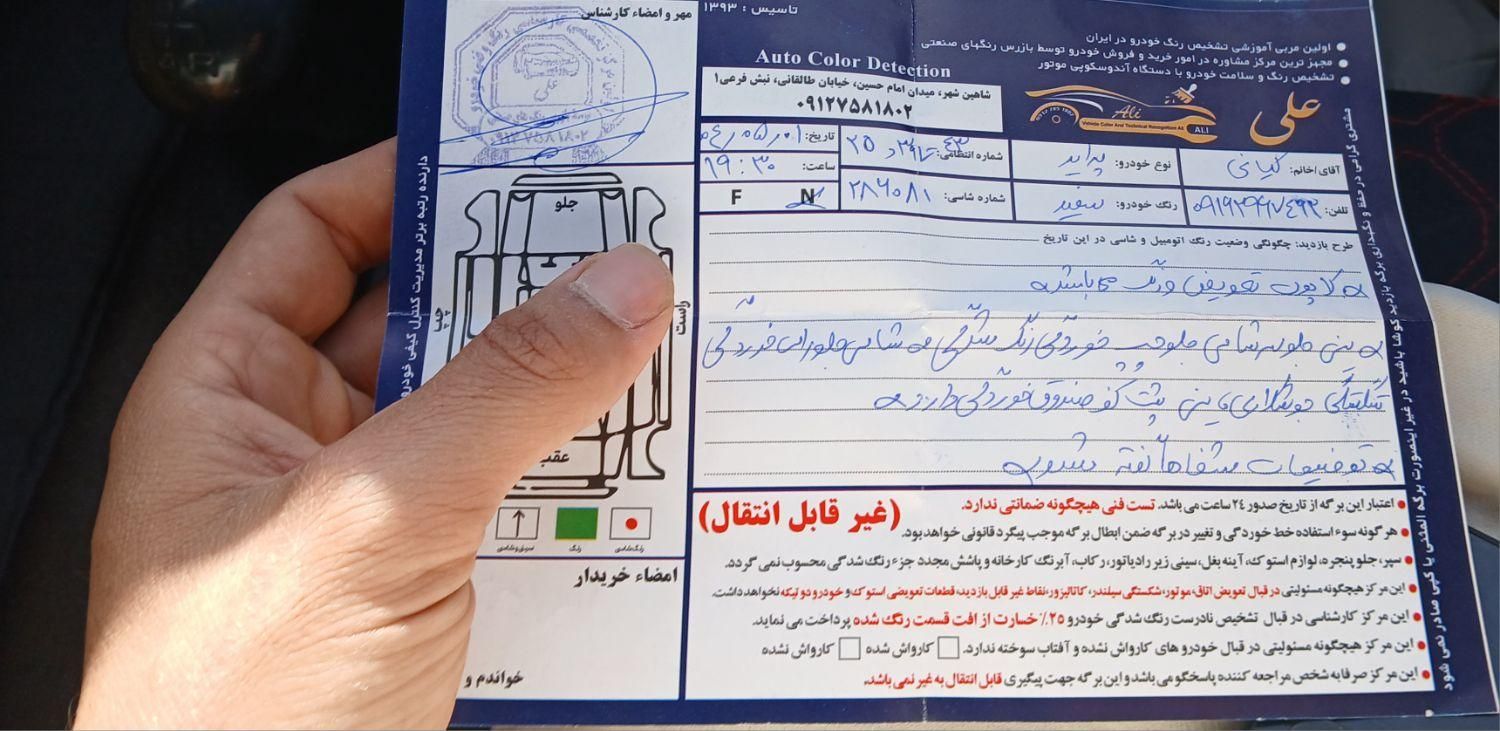 تاسیس : ۱۳۹۳
اولین مربی آموزشی تشخیص رنگ خودرو در ایران
مجهز ترین مرکز مشاوره در امور خرید و فروش خودرو توسط بازرس رنگهای صنعتی
تشخیص رنگ و سلامت خودرو با دستگاه آندوسکوپی موتور
Auto Color Detection
شاهین شهر، میدان امام حسین، خیابان طالقانی، نبش فرعی۱
۰۹۱۲۷۵۸۱۸۰۲
علی
Ali
Vehicle Color And Technical Recognition
ALI
مهر و امضاء کارشناس
علی
۰۹۱۲۷۵۸۱۸۰۲
آقای/خانم: کیانی
نوع خودرو: پراید
شماره انتظامی:
تاریخ: ۰۴/۰۵/۰۱
ساعت: ۱۹:۳۰
تلفن:
رنگ خودرو: سفید
شماره شاسی: ۲۸۶۰۸۱
F N
طرح بازدید: چگونگی وضعیت رنگ اتومبیل و شاسی در این تاریخ
کاپوت تعویض ورنگ می باشد
جلو شاسی جلو چپ خوردگی رنگ شدگی شاسی جلو راست خوردگی
پشت کف صندوق خوردگی دارد
توضیحات شفاها گفته شد
جلو
راست
چپ
عقب
رنگ شاسی
رنگ
امضاء خریدار
خواندم و
(غیر قابل انتقال)
اعتبار این برگه از تاریخ صدور ۲۴ ساعت می باشد. تست فنی هیچگونه ضمانتی ندارد.
هر گونه سوء استفاده خط خوردگی و تغییر در برگه ضمن ابطال برگه موجب پیگرد قانونی خواهد بود.
سپر، جلو پنجره، لوازم استوک، آینه بغل، سینی زیر رادیاتور، رکاب، آبرنگ کارخانه و پاشش مجدد جزء رنگ شدگی محسوب نمی گردد.
این مرکز هیچگونه مسئولیتی در قبال تعویض اتاق، موتور، شکستگی سیلندر، کاتالیزور، نقاط غیر قابل بازدید، قطعات تعویضی استوک و خودرو دو تیکه نخواهد داشت.
این مرکز کارشناسی در قبال تشخیص نادرست رنگ شدگی خودرو ۲۵٪ خسارت از افت قسمت رنگ شده پرداخت می نماید.
این مرکز هیچگونه مسئولیتی در قبال خودرو های کارواش نشده و آفتاب سوخته ندارد. کارواش شده کارواش نشده
این مرکز صرفا به شخص مراجعه کننده پاسخگو می باشد و این برگه جهت پیگیری قابل انتقال به غیر نمی باشد.
مشتری گرامی در حفظ و نگهداری برگه بازدید کوشا باشید در غیر اینصورت برگه المثنی یا کپی صادر نمی شود
دارنده رتبه برتر مدیریت کنترل کیفی خودرو